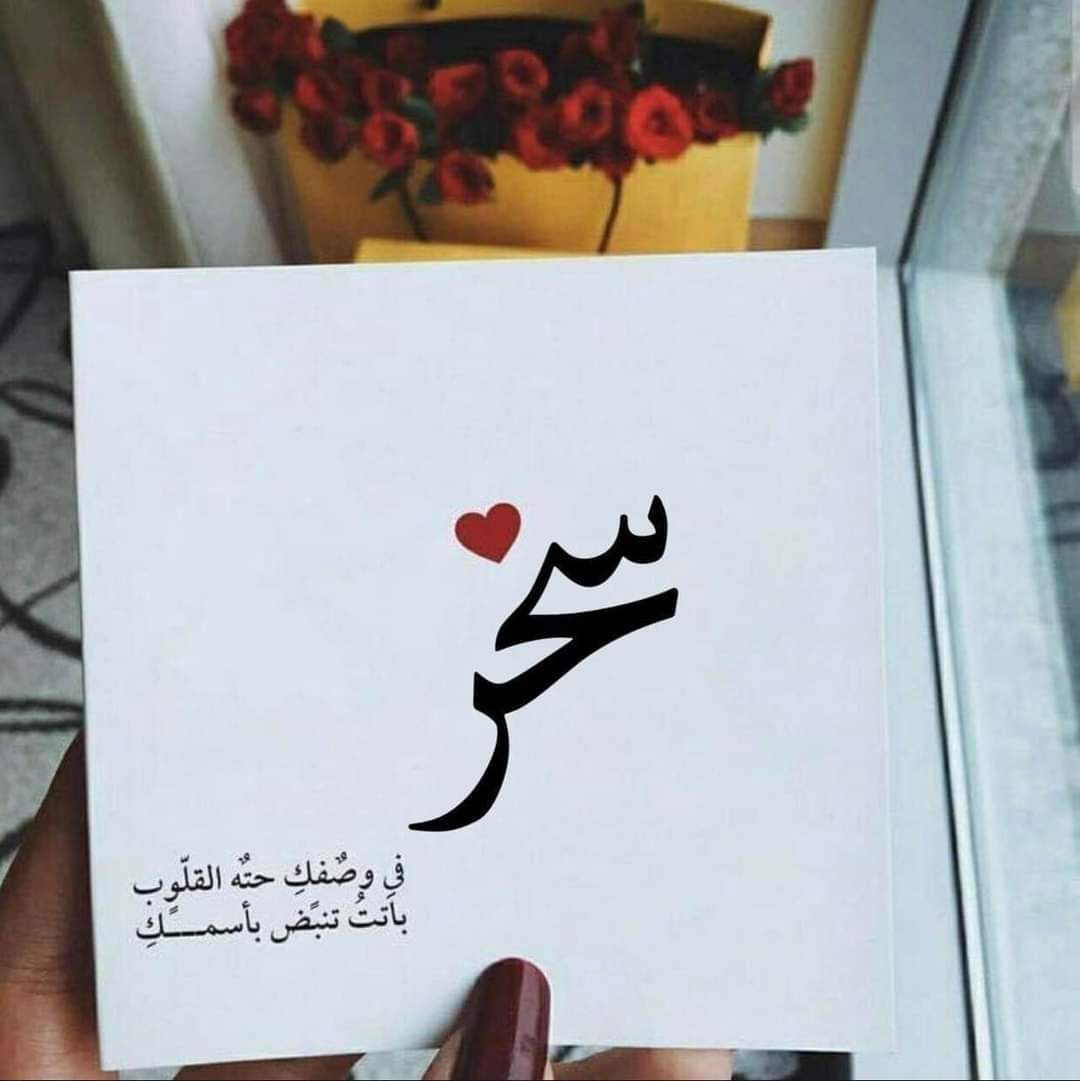 سحر
في وصٌفكِ حتهٌ القلّوب
باَتتُ تنبًض بأسمـــــكِ